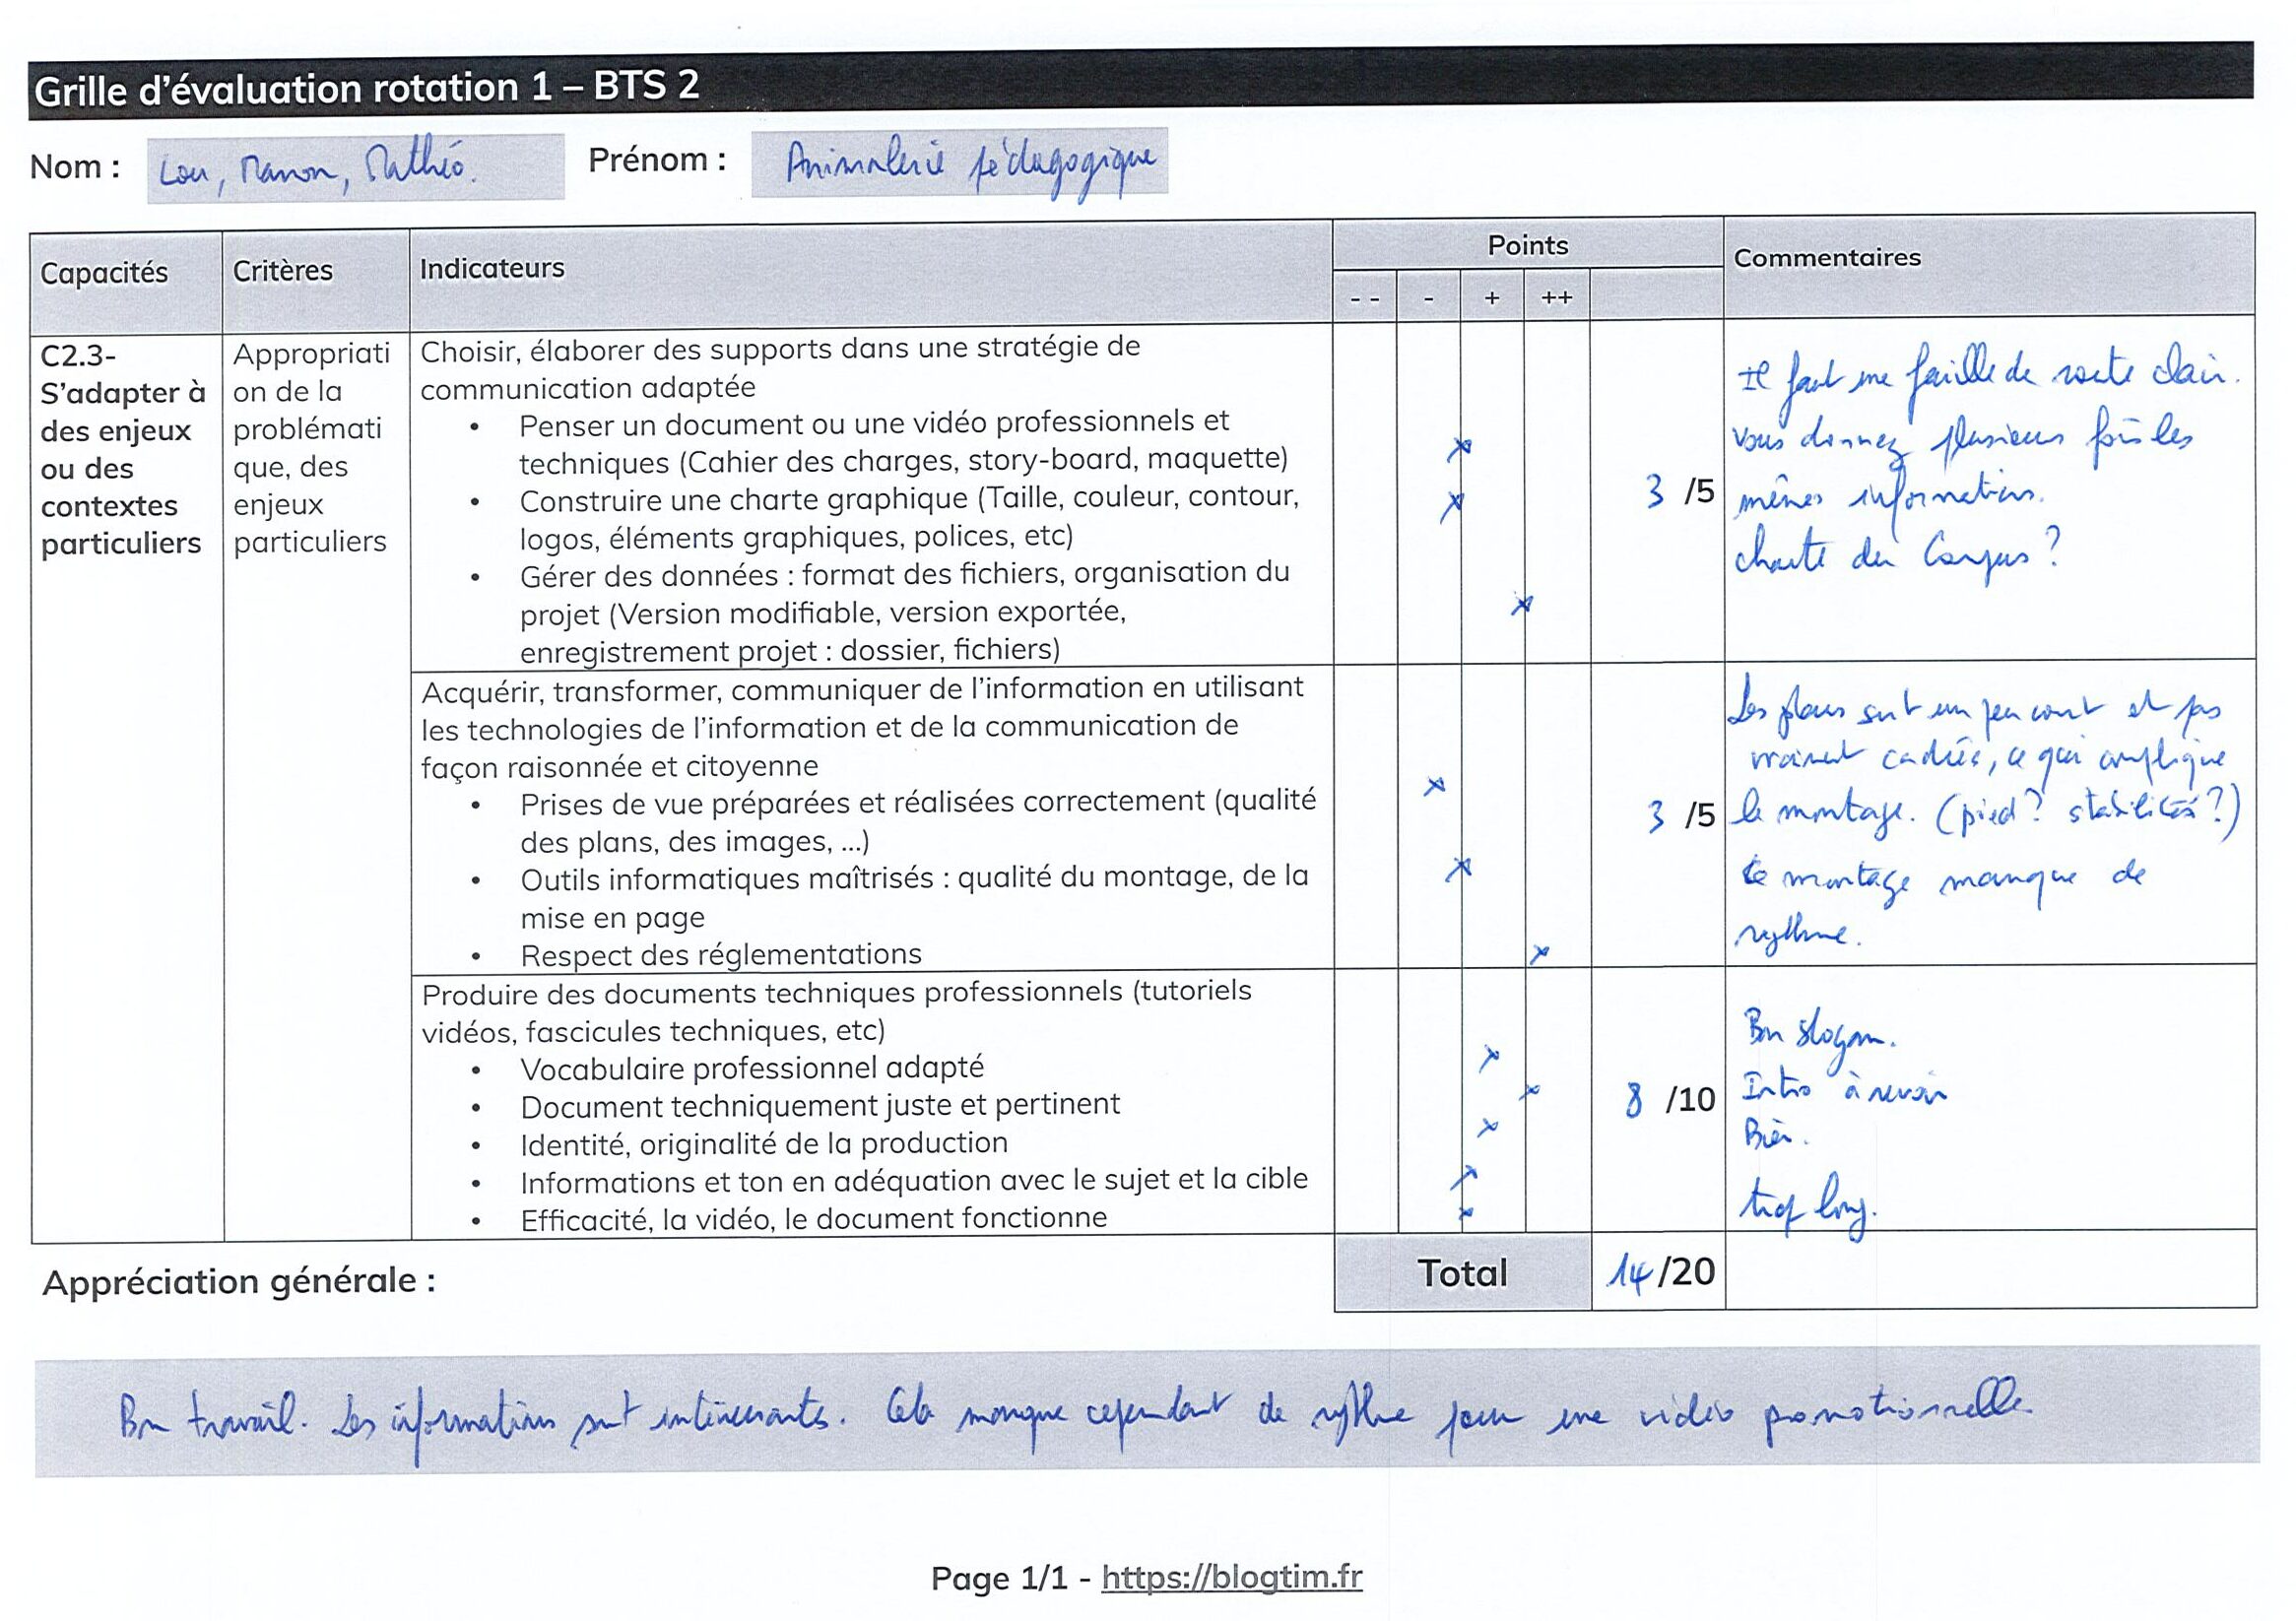 Grille d'évaluation rotation 1 – BTS 2
Nom : Lou, Manon, Mathéo. Prénom : Animalerie pédagogique
Capacités Critères Indicateurs Points Commentaires
- - - + ++
C2.3-
S'adapter à
des enjeux
ou des
contextes
particuliers
Appropriati
on de la
problémati
que, des
enjeux
particuliers
Choisir, élaborer des supports dans une stratégie de
communication adaptée
• Penser un document ou une vidéo professionnels et
techniques (Cahier des charges, story-board, maquette)
• Construire une charte graphique (Taille, couleur, contour,
logos, éléments graphiques, polices, etc)
• Gérer des données : format des fichiers, organisation du
projet (Version modifiable, version exportée,
enregistrement projet : dossier, fichiers)
3 /5
Il faut une feuille de route clair.
Vous donnez plusieurs fois les
mêmes informations.
charte du Campus ?
Acquérir, transformer, communiquer de l'information en utilisant
les technologies de l'information et de la communication de
façon raisonnée et citoyenne
• Prises de vue préparées et réalisées correctement (qualité
des plans, des images, ...)
• Outils informatiques maîtrisés : qualité du montage, de la
mise en page
• Respect des réglementations
3 /5
Les plans sont un peu court et pas
vraiment cadrés, ce qui complique
le montage. (pied ? stabilité ?)
Le montage manque de
rythme.
Produire des documents techniques professionnels (tutoriels
vidéos, fascicules techniques, etc)
• Vocabulaire professionnel adapté
• Document techniquement juste et pertinent
• Identité, originalité de la production
• Informations et ton en adéquation avec le sujet et la cible
• Efficacité, la vidéo, le document fonctionne
8 /10
Bon slogan.
Intro à revoir
Bien.
trop long.
Total 14/20
Appréciation générale :
Bon travail. Les informations sont intéressantes. Cela manque cependant de rythme pour une vidéo promotionnelle.
Page 1/1 - https://blogtim.fr